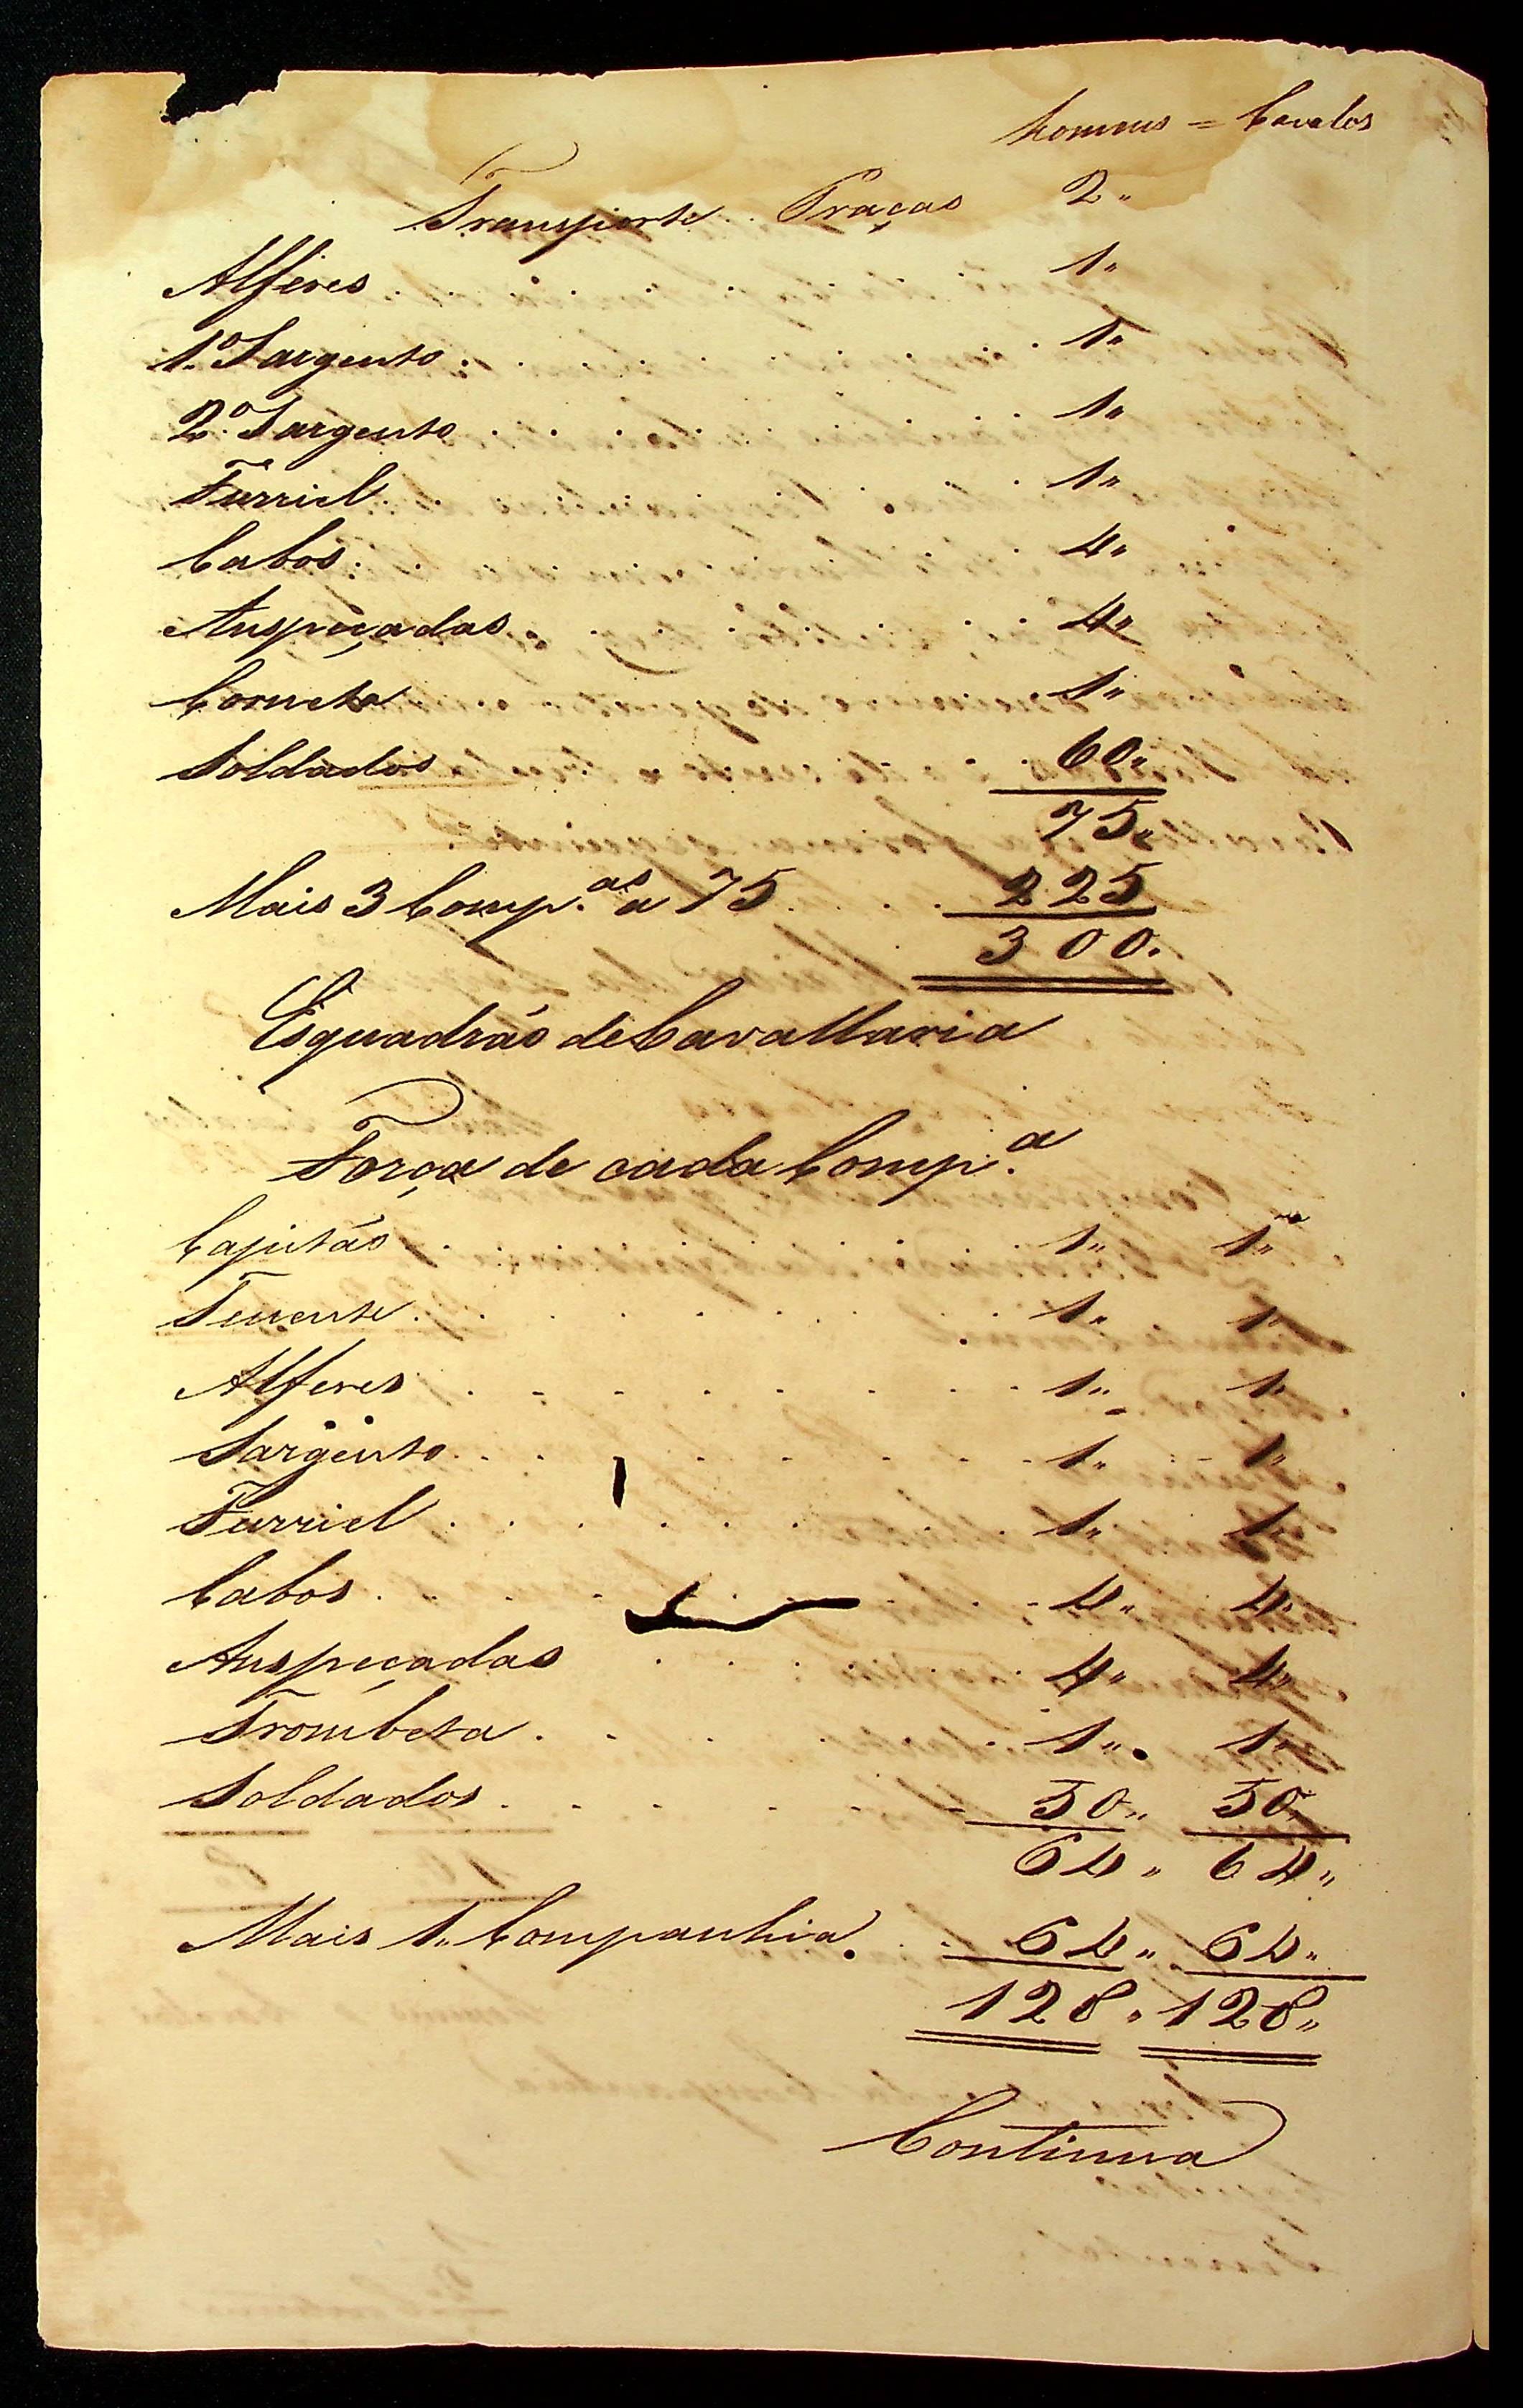 homens = Cavalos
Transporte . Praças 2"
Alferes 1"
1.º Sargento 1"
2.º Sargento 1"
Furriel 1"
Cabos 4"
Anspeçadas 4"
Corneta 1"
Soldados 60"
75"
Mais 3 Comp.as a 75 225
300.
Esquadrão de Cavallaria
Força de cada Comp.a
Capitão 1" 1"
Tenente 1" 1"
Alferes 1" 1"
Sargento 1" 1"
Furriel 1" 1"
Cabos 4" 4"
Anspeçadas 4" 4"
Trombeta 1" 1"
Soldados 50" 50"
64" 64"
Mais 1" Companhia 64" 64"
128" 128"
Continua